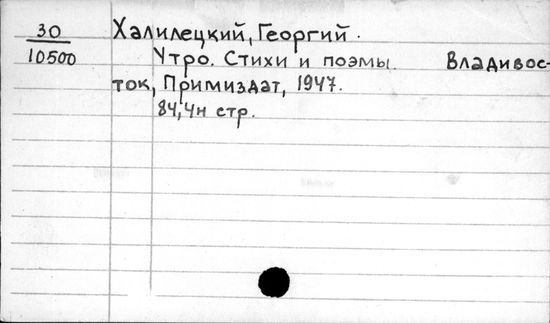 30 Халилецкий, Георгий.
10500 Утро. Стихи и поэмы. Владивос-
ток, Примиздат, 1947.
84,4н стр.